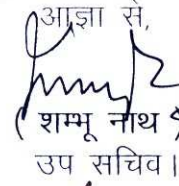 आज्ञा से,
( शम्भू नाथ )
उप सचिव।